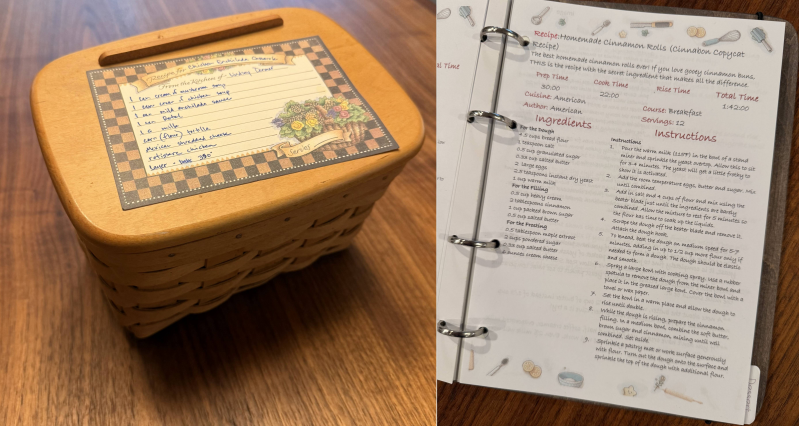 Recipe for Chicken Enchilada Casserole
From the Kitchen of
1 can cream of mushroom soup
1 can cream of chicken soup
1 can mild enchilada sauce
1 can Rotel
1 c. milk
corn (flour) tortilla
Mexican shredded cheese
rotisserie chicken
Layer - bake 350°
Serves
Total Time
Recipe: Homemade Cinnamon Rolls (Cinnabon Copycat
Recipe)
The best homemade cinnamon rolls ever! If you love gooey cinnamon buns,
THIS is the recipe with the secret ingredient that makes all the difference.
Prep Time Cook Time Rise Time Total Time
30:00 22:00 1:42:00
Cuisine: American Course: Breakfast
Author: American Servings: 12
Ingredients
For the Dough
4.5 cups bread flour
1 teaspoon salt
0.5 cup granulated sugar
salted butter
2 large eggs
2.5 teaspoons instant dry yeast
1 cup warm milk
For the Filling
0.5 cup heavy cream
2 tablespoons cinnamon
1 cup packed brown sugar
0.5 cup salted butter
For the Frosting
0.5 tablespoon maple extract
cups powdered sugar
salted butter
ounces cream cheese
Instructions
Instructions
1. Pour the warm milk (115°F) in the bowl of a stand
mixer and sprinkle the yeast overtop. Allow this to sit
for 3-4 minutes. The yeast will get a little frothy to
show it is activated.
2. Add the room temperature eggs, butter and sugar. Mix
until combined.
3. Add in salt and 4 cups of flour and mix using the
beater blade just until the ingredients are barely
combined. Allow the mixture to rest for 5 minutes so
the flour has time to soak up the liquids.
4. Scrape the dough off the beater blade and remove it.
Attach the dough hook.
5. To knead, beat the dough on medium speed for 5-7
minutes, adding in up to 1/2 cup more flour only if
needed to form a dough. The dough should be elastic
and smooth.
6. Spray a large bowl with cooking spray. Use a rubber
spatula to remove the dough from the mixer bowl and
place it in the greased large bowl. Cover the bowl with a
towel or wax paper.
7. Set the bowl in a warm place and allow the dough to
rise until double.
8. While the dough is rising, prepare the cinnamon
filling. In a medium bowl, combine the soft butter,
brown sugar and cinnamon, mixing until well
combined. Set aside.
9. Sprinkle a pastry mat or work surface generously
with flour. Turn out the dough onto the surface and
sprinkle the top of the dough with additional flour.